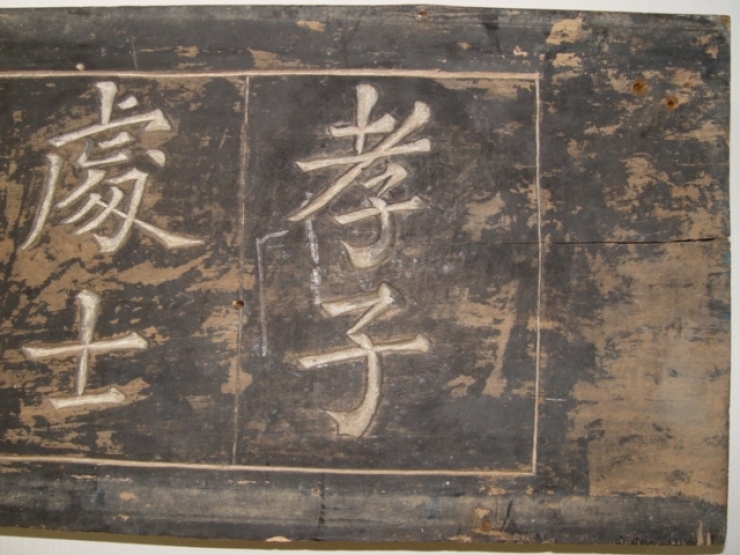 孝子
處士